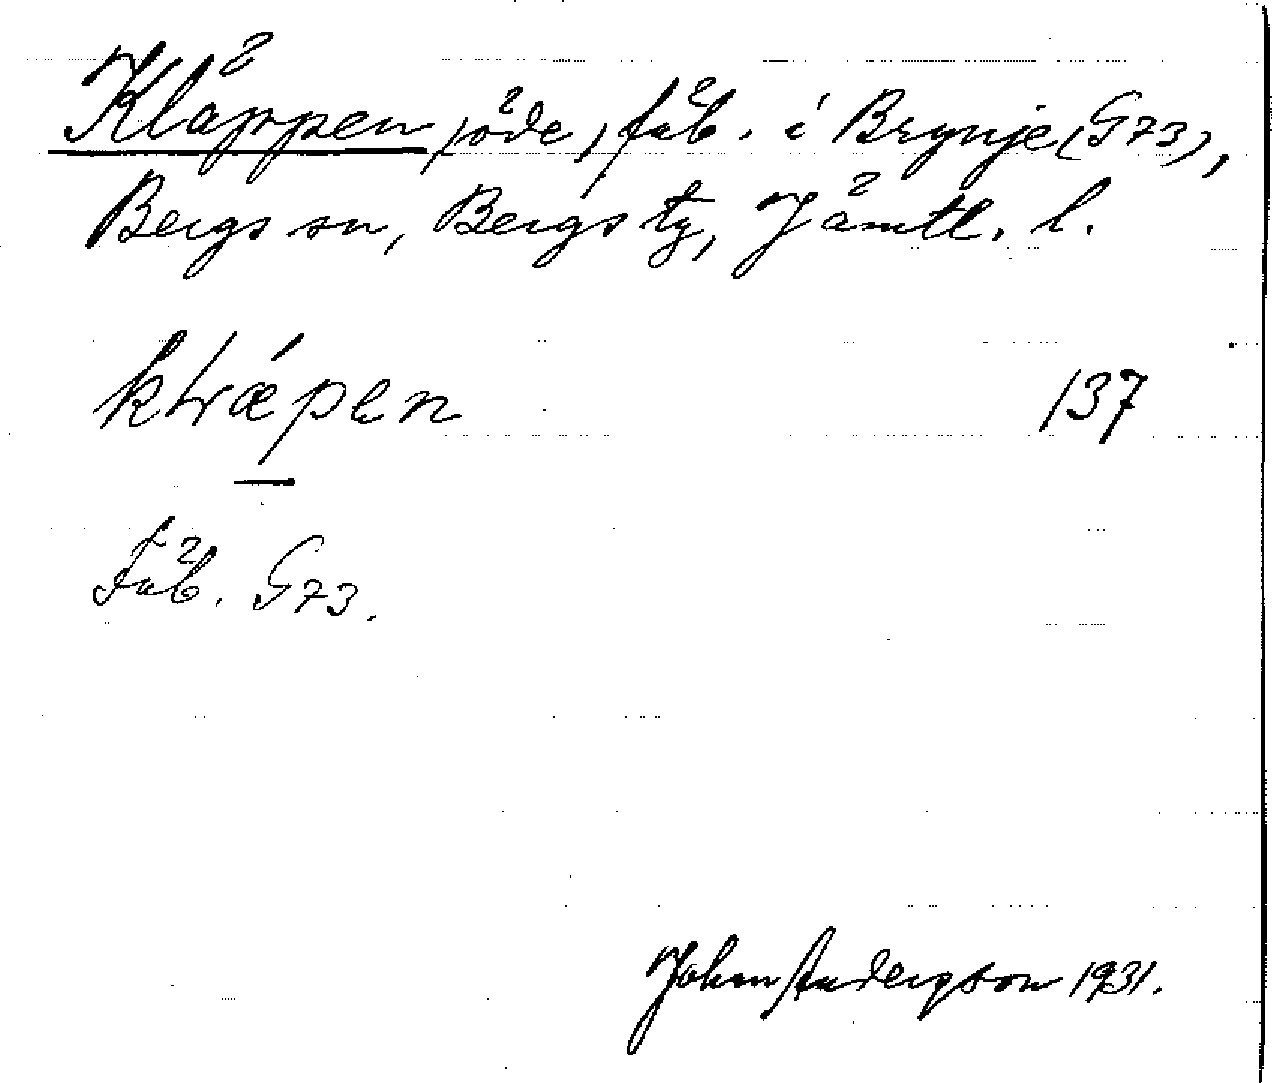 Kläppen, öde, fäb. i Brynje (G73),
Bergs sn, Bergs tg, Jämtl. l.
137
Fäb. G73.
Johan Anderson 1931.